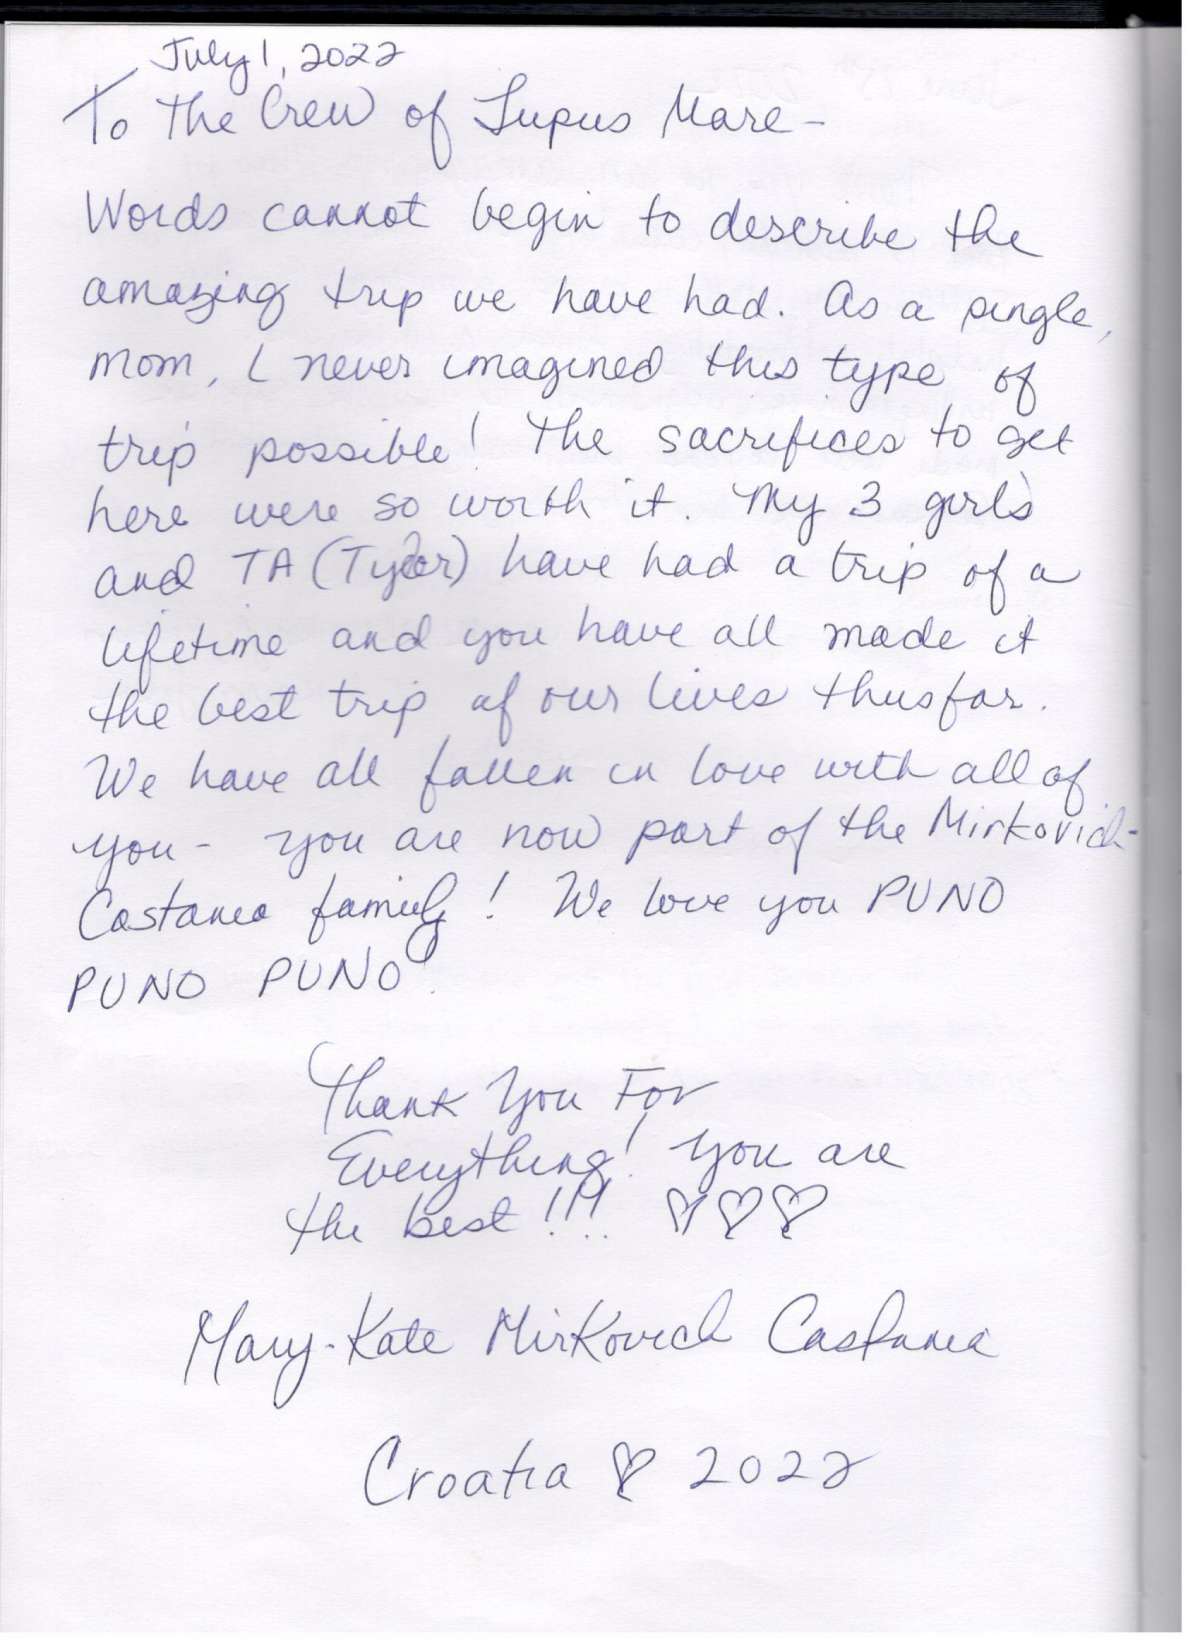 July 1, 2022
To The Crew of Lupus Mare -
Words cannot begin to describe the
amazing trip we have had. As a single,
mom, I never imagined this type of
trip possible! The sacrifices to get
here were so worth it. My 3 girls
and TA (Tyler) have had a trip of a
lifetime and you have all made it
the best trip of our lives thusfar.
We have all fallen in love with all of
you - you are now part of the Mirkovich-
Castanea family! We love you PUNO
PUNO PUNO!
Thank You For
Everything! You are
the best!!!! ♡♡♡
Mary-Kate Mirkovich Castanea
Croatia ♡ 2022